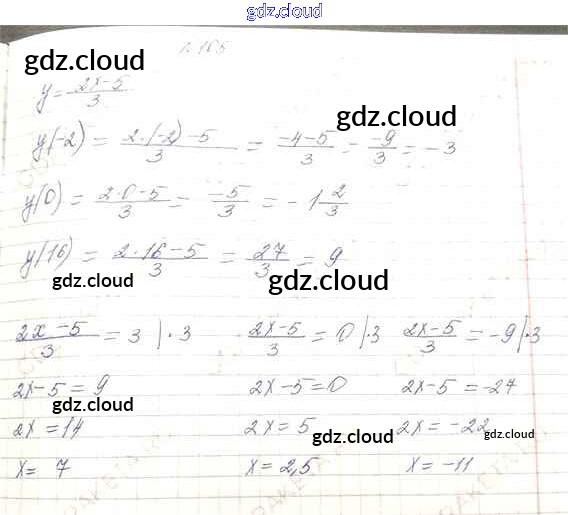 gdz.cloud
gdz.cloud
y = 2x-5/3
gdz.cloud
y(-2) = 2·(-2)-5/3 = -4-5/3 = -9/3 = -3
y(0) = 2·0-5/3 = -5/3 = -1 2/3
y(16) = 2·16-5/3 = 27/3 = 9
gdz.cloud gdz.cloud
2x-5/3 = 3 |·3 2x-5/3 = 0 |·3 2x-5/3 = -9 |·3
2x-5 = 9 2x-5=0 2x-5 = -27
gdz.cloud
2x = 14 2x = 5 2x = -22
gdz.cloud gdz.cloud
x = 7 x = 2,5 x = -11